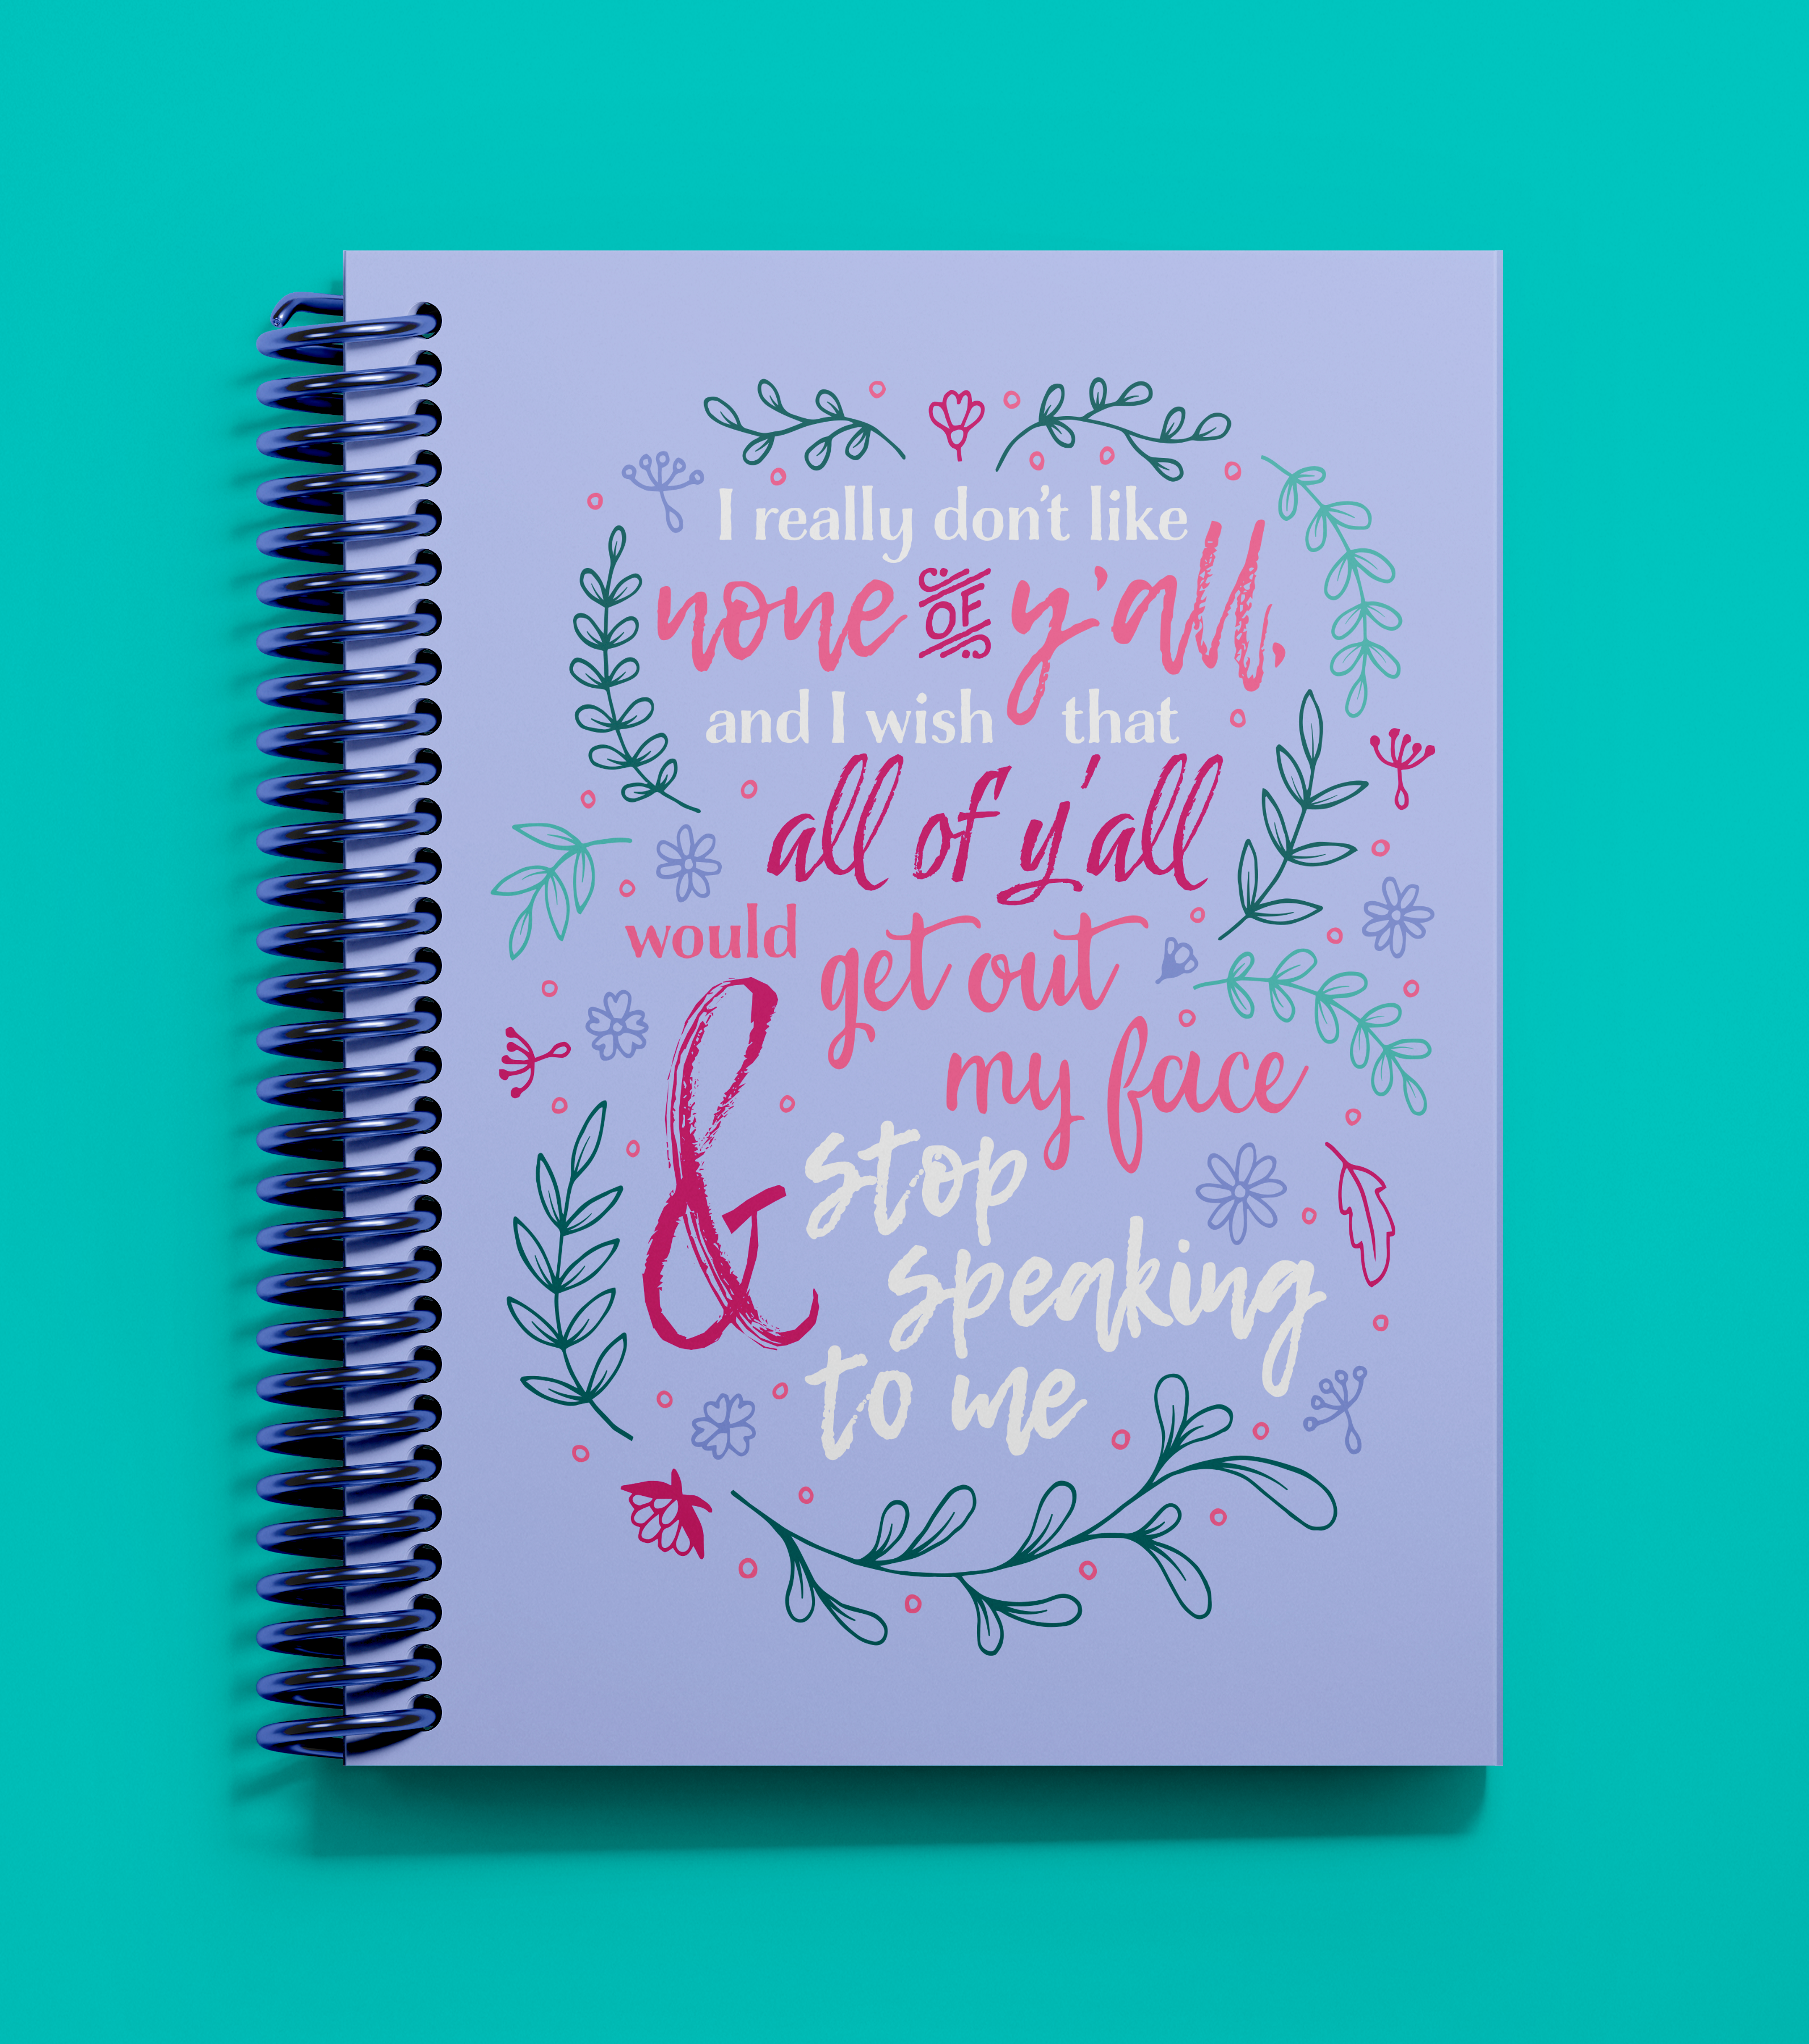 I really don't like
none OF y'all,
and I wish that
all of y'all
would get out
my face
& stop
speaking
to me